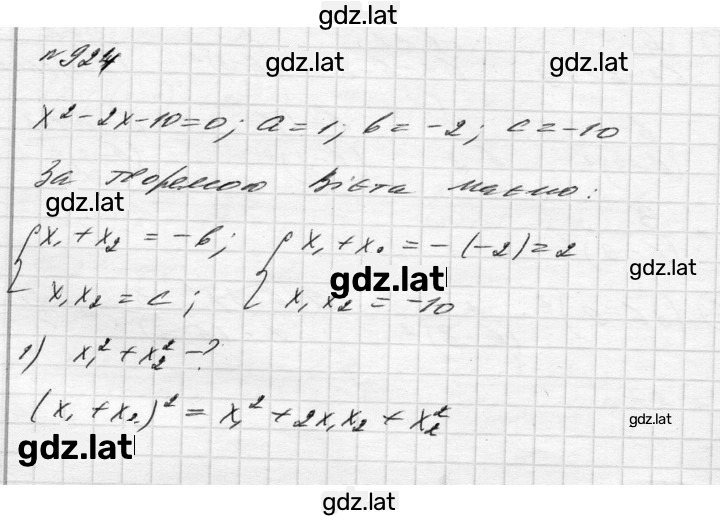 gdz.lat
№ 924
gdz.lat gdz.lat
x² - 2x - 10 = 0; a = 1; b = -2; c = -10
За теоремою Вієта маємо:
gdz.lat
{ x₁ + x₂ = -b; { x₁ + x₂ = -(-2) = 2
gdz.lat gdz.lat
x₁x₂ = c; x₁x₂ = -10
1) x₁² + x₂² - ?
(x₁ + x₂)² = x₁² + 2x₁x₂ + x₂²
gdz.lat
gdz.lat
gdz.lat